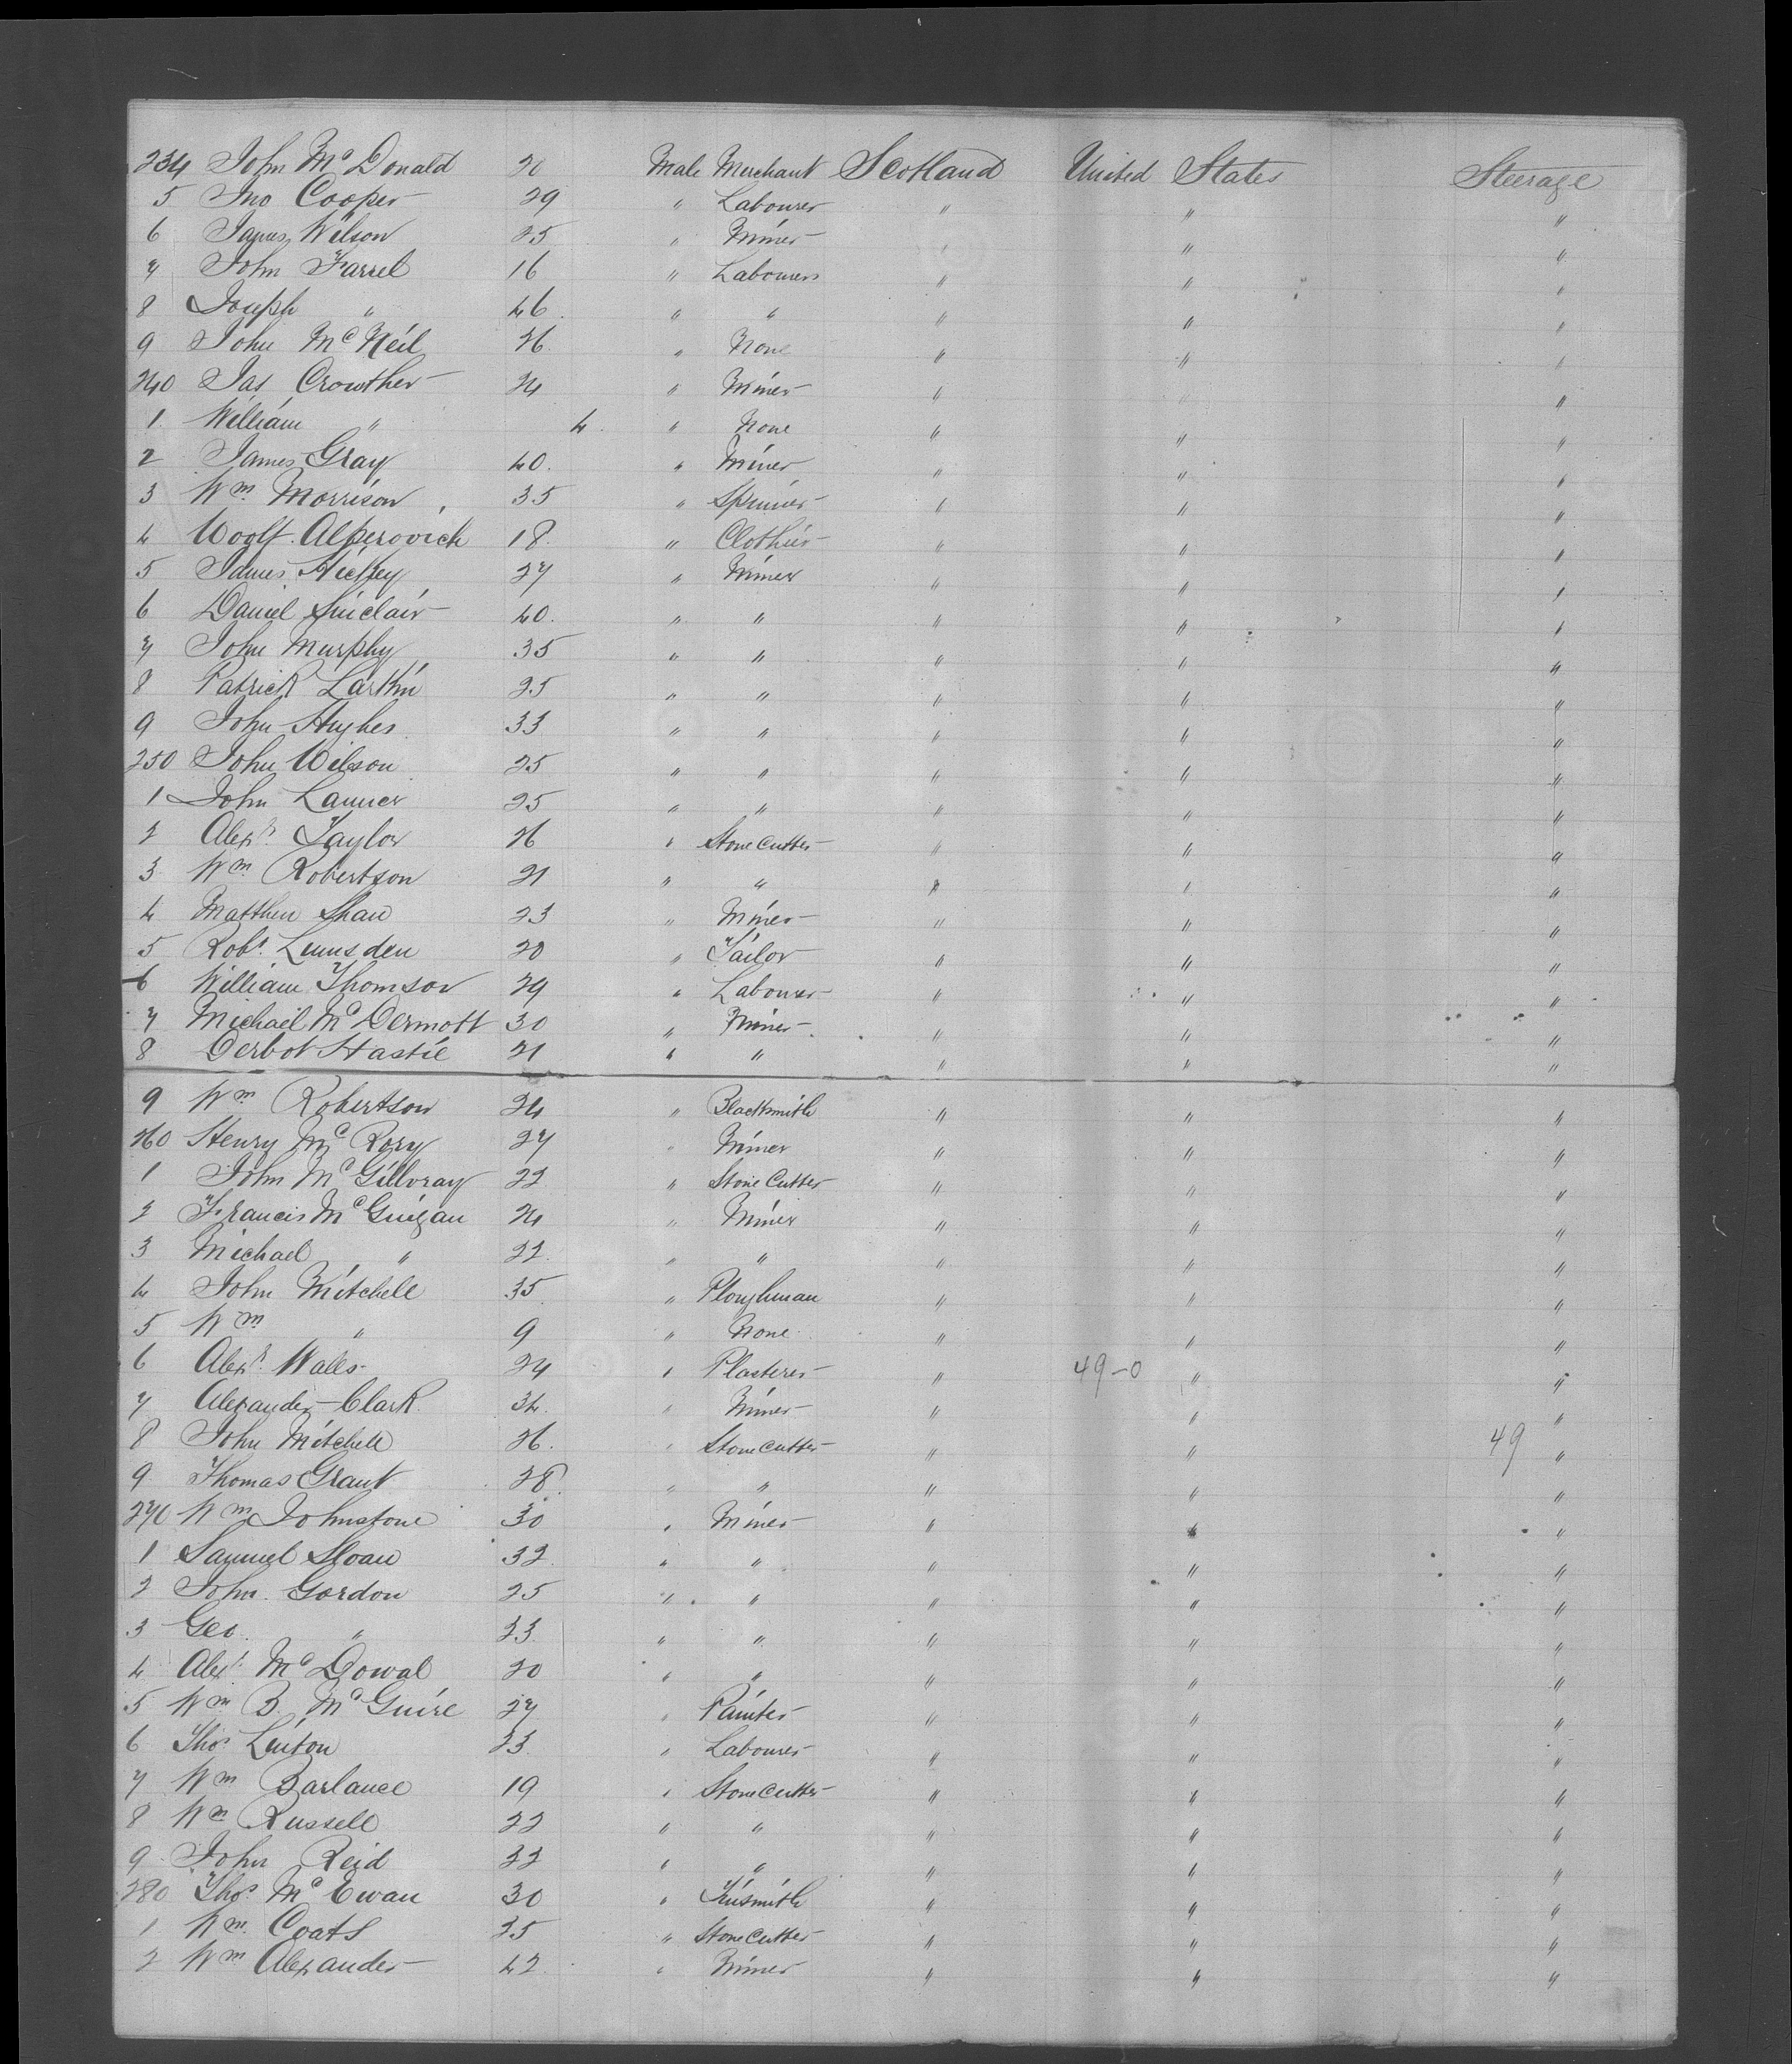 234 John McDonald 20 Male Merchant Scotland United States Steerage
5 Jno Cooper 29 " Labourer " " "
6 James Wilson 25 " Miner " " "
7 John Farrel 16 " Labourer " " "
8 Joseph " 46 " " " " "
9 John McNeil 26 " None " " "
240 Jas Crowther 24 " Miner " " "
1 William " 4 " None " " "
2 James Gray 40 " Miner " " "
3 Wm Morrison 35 " Spinner " " "
4 Woolf Alperovich 18 " Clothier " " "
5 James Hickey 27 " Miner " " "
6 Daniel Sinclair 40 " " " " "
7 John Murphy 35 " " " " "
8 Patrick Larkin 25 " " " " "
9 John Hughes 33 " " " " "
250 John Wilson 25 " " " " "
1 John Lanner 25 " " " " "
2 Alexr Taylor 26 " Stone cutter " " "
3 Wm Robertson 21 " " " " "
4 Matthew Shaw 23 " Miner " " "
5 Robt Lumsden 20 " Tailor " " "
6 William Thomson 29 " Labourer " " "
7 Michael McDermott 30 " Miner " " "
8 Hastie 21 " " " " "
9 Wm Robertson 24 " Blacksmith " " "
260 Henry McRory 27 " Miner " " "
1 John McGillvray 22 " Stone Cutter " " "
2 Francis McGuigan 24 " Miner " " "
3 Michael " 22 " " " " "
4 John Mitchell 35 " Ploughman " " "
5 Wm " 9 " None " " "
6 Alexr Walls 24 " Plasterer " 49-0 " "
7 Alexander Clark 34 " Miner " " "
8 John Mitchell 26 " Stone cutter " " 49 "
9 Thomas Grant 28 " " " " "
270 Wm Johnstone 30 " Miner " " "
1 Samuel Sloan 32 " " " " "
2 John Gordon 25 " " " " "
3 Geo. " 23 " " " " "
4 Alexr McDowal 20 " " " " "
5 Wm B. McGuire 27 " Painter " " "
6 Thos Linton 33 " Labourer " " "
7 Wm Barlance 19 " Stone cutter " " "
8 Wm Russell 22 " " " " "
9 John Reid 22 " " " " "
280 Thos McEwan 30 " Tinsmith " " "
1 Wm Coats 35 " Stone cutter " " "
2 Wm Alexander 42 " Miner " " "